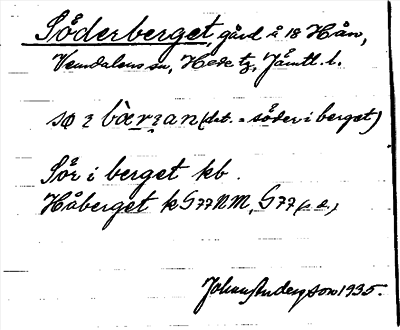 Söderberget, gård å 18 Hån,
Vemdalens sn, Hede tg, Jämtl. l.
sø ɿ bæ̀rɿan (bet. = söder i berget)
Sör i berget kb.
Håberget k G77NM, G77 (s.e.)
Johan Anderson 1935.